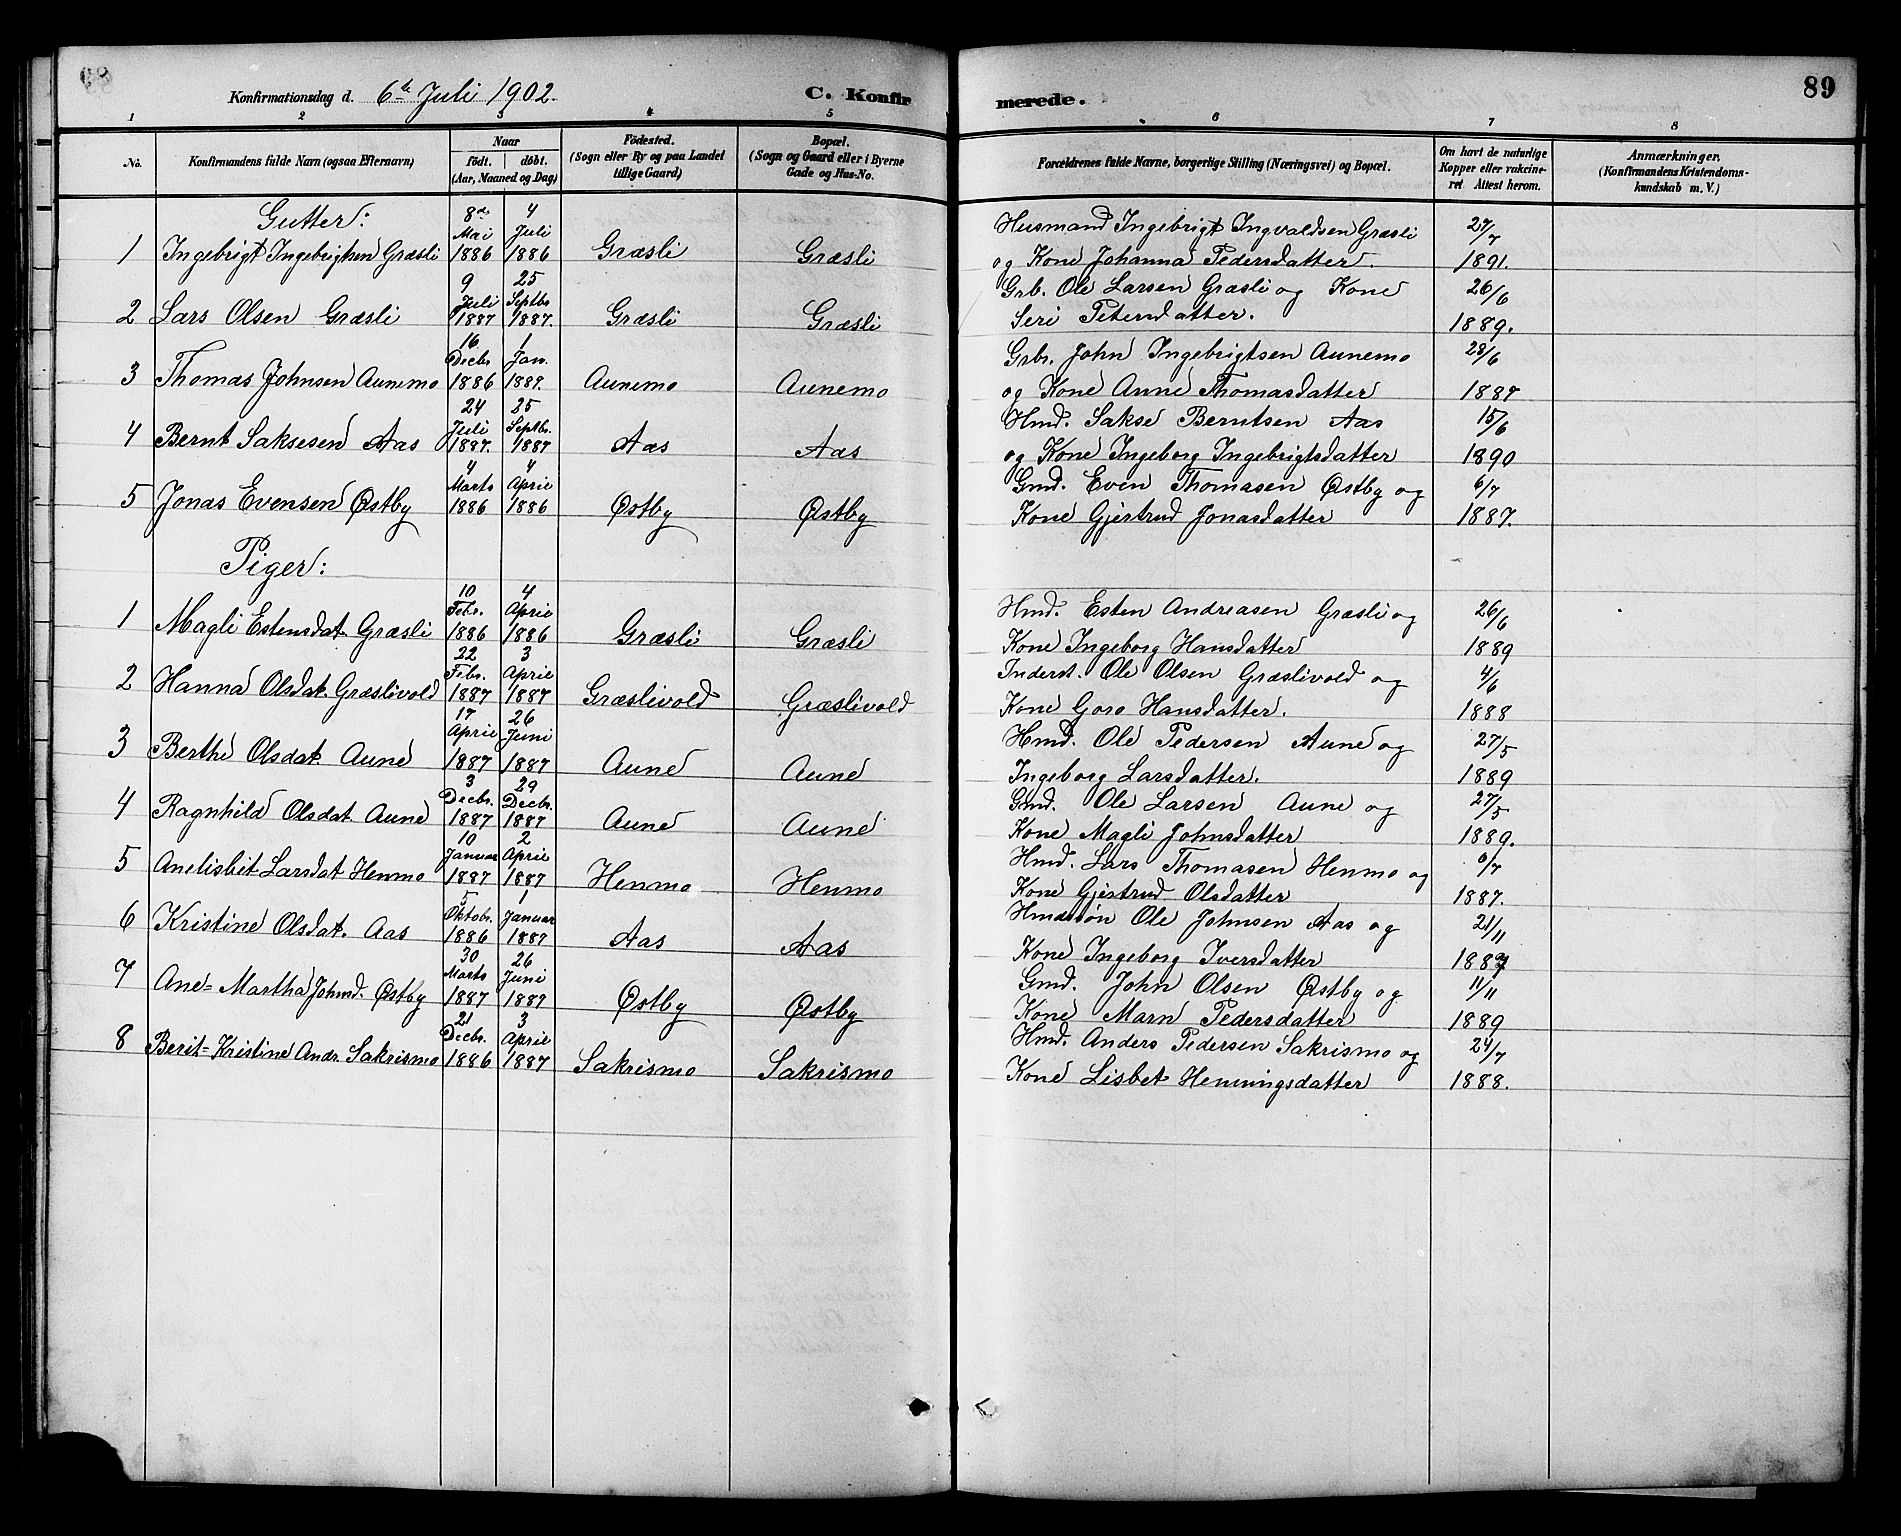 Konfirmationsdag d. 6te Juli 1902. C. Konfirmerede. 89
1 2 3 4 5 6 7 8
No. Konfirmandens fulde Navn (ogsaa Efternavn) Naar födt. döbt. (Aar, Maaned og Dag) Födested. (Sogn eller By og paa Landet tillige Gaard) Bopæl. (Sogn og Gaard eller i Byerne Gade og Hus-No. Forældrenes fulde Navne, borgerlige Stilling (Næringsvei) og Bopæl. Om havt de naturlige Kopper eller vakcineret. Attest herom. Anmærkninger. (Konfirmandens Kristendomskundskab m. V.)
Gutter:
1 Ingebrigt Ingebrigtsen Græsli 8de Mai 1886 4 Juli 1886 Græsli Græsli Husmand Ingebrigt Ingvaldsen Græsli og Kone Johanna Pedersdatter. 27/7 1891.
2 Lars Olsen Græsli 9 Juli 1887 25 Septbr 1887. Græsli Græsli Grb. Ole Larsen Græsli og Kone Seri Petersdatter. 26/6 1889.
3 Thomas Johnsen Aunemo 16 Decbr 1886 1 Jan. 1887. Aunemo Aunemo Grbr. John Ingebrigtsen Aunemo og Kone Anne Thomasdatter 28/6 1887
4 Bernt Saksesen Aas 24 Juli 1887. 25 Septbr. 1887 Aas Aas Hmd. Sakse Berntsen Aas og Kone Ingeborg Ingebrigtsdatter 15/6 1890
5 Jonas Evensen Østby 4 Marts 1886 4 April 1886 Østby Østby Gmd. Even Thomasen Østby og Kone Gjertrud Jonasdatter 6/7 1887.
Piger:
1 Magli Estensdat. Græsli 10 Febr. 1886 4 April 1886 Græsli Græsli Hmd. Esten Andreasen Græsli og Kone Ingeborg Hansdatter 26/6 1889
2 Hanna Olsdat. Græslivold 22 Febr. 1887 3 April 1887 Græslivold Græslivold Inderst. Ole Olsen Græslivold og Kone Goro Hansdatter. 4/6 1888
3 Berthe Olsdat. Aune 17 April 1887 26 Juni 1887 Aune Aune Hmd. Ole Pedersen Aune og Ingeborg Larsdatter. 27/5 1889
4 Ragnhild Olsdat. Aune 3 Decbr. 1887 29 Decbr. 1887 Aune Aune Gmd. Ole Larsen Aune og Kone Magli Johnsdatter 27/5 1889.
5 Anelisbet Larsdat Henmo 10 Januar 1887 2 April 1887 Henmo Henmo Hmd. Lars Thomasen Henmo og Kone Gjertrud Olsdatter /7 1887.
6 Kristine Olsdat. Aas 5 Oktobr. 1886 1 Januar 1887 Aas Aas Hmdssøn Ole Johnsen Aas og Kone Ingeborg Iversdatter 21/11
7 Ane=Martha Johnsd. Østby 30 Marts 1887 26 Juni 1887 Østby Østby Gmd. John Olsen Østby og Kone Marn Pedersdatter 11/11 1889
8 Berit=Kristine Andr. Sakrismo 21 Decbr. 1886 3 April 1887 Sakrismo Sakrismo Hmd. Anders Pedersen Sakrismo og Kone Lisbet Henningsdatter 24/7 1888.